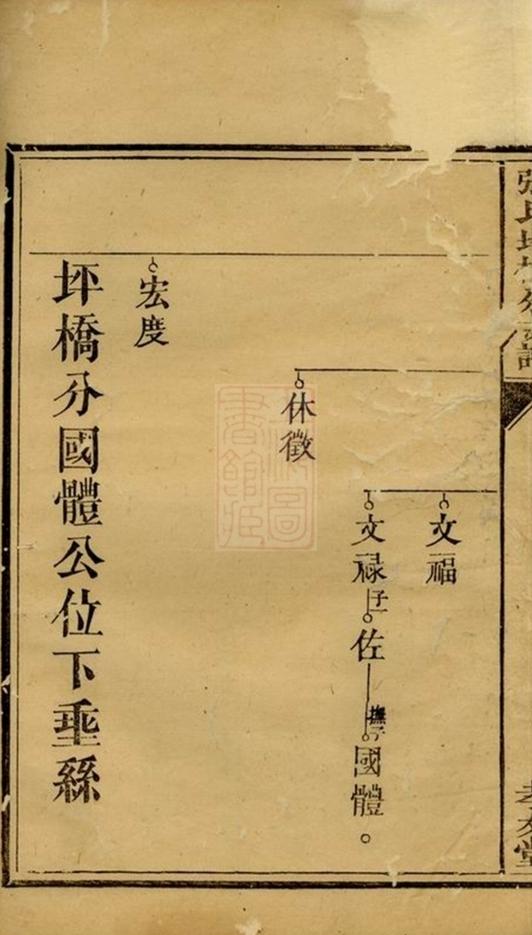 文福
文祿子一佐撫子國體。
休徵
宏度
坪橋分國體公位下埀絲